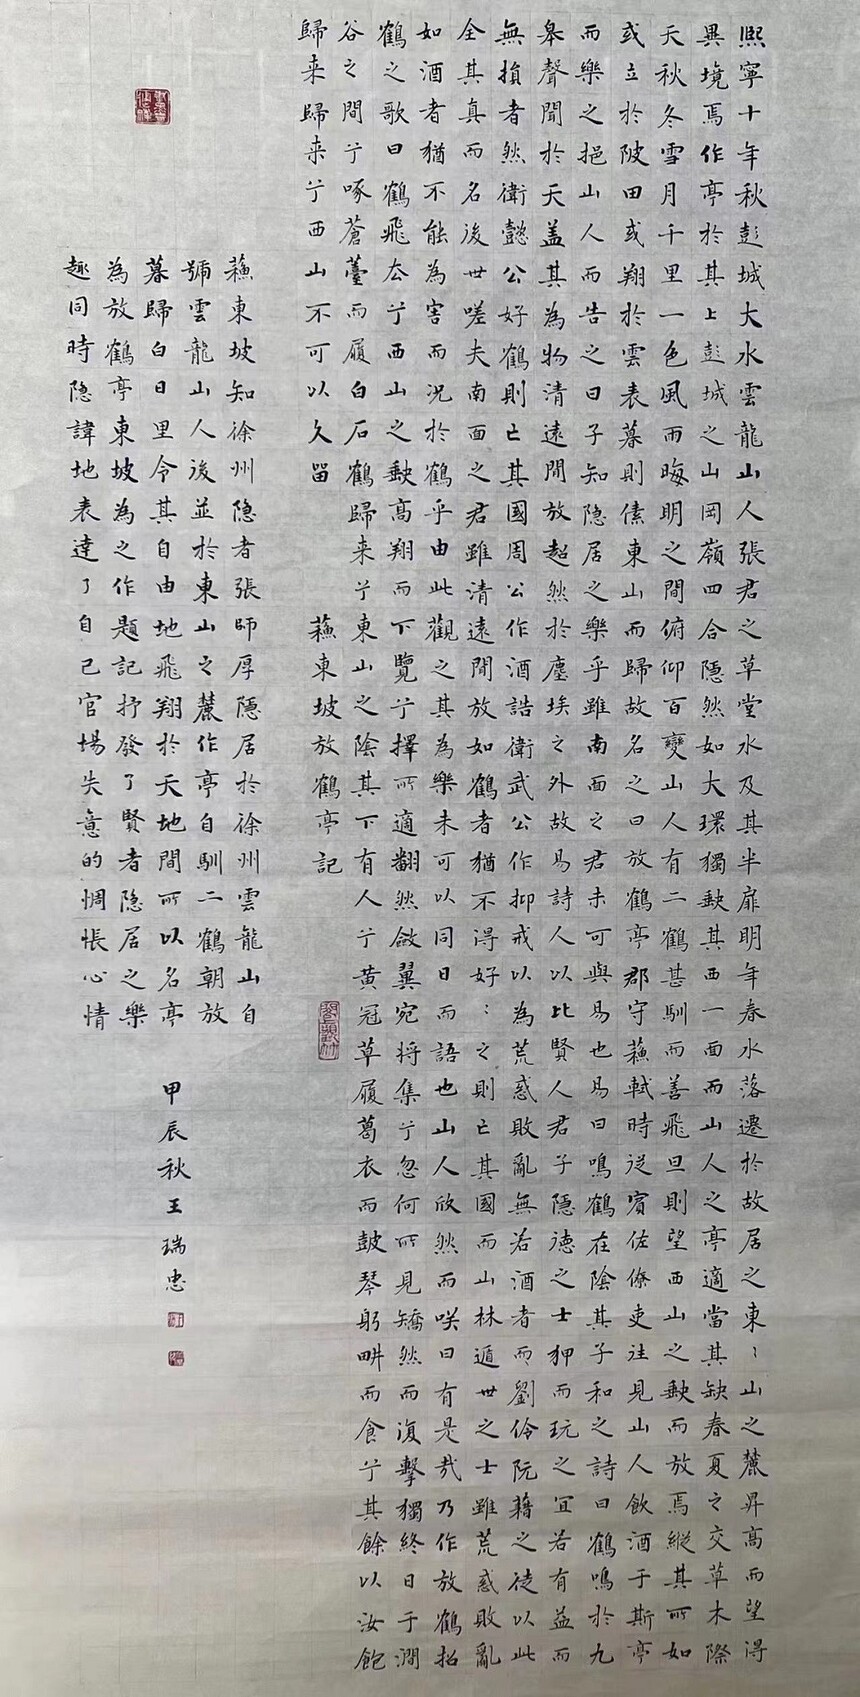 熈寧十年秋彭城大水雲龍山人張君之草堂水及其半扉明年春水落遷於故居之東﹔山之麓昇高而望得
異境焉作亭於其上彭城之山岡嶺四合隱然如大環獨缺其西一面而山人之亭適當其缺春夏之交草木際
天秋冬雪月千里一色風雨晦明之間俯仰百變山人有二鶴甚馴而善飛旦則望西山之缺而放焉縱其所如
或立於陂田或翔於雲表暮則傃東山而歸故名之曰放鶴亭郡守蘇軾時從賓佐僚吏往見山人飲酒于斯亭
而樂之挹山人而告之曰子知隐居之樂乎雖南面之君未可與易也易曰鳴鶴在陰其子和之詩曰鶴鳴於九
皋聲聞於天盖其為物清遠閒放超然於塵埃之外故易詩人以比賢人君子隱德之士狎而玩之宜若有益而
無損者然衛懿公好鶴則亡其國周公作酒誥衛武公作抑戒以為荒惑敗亂無若酒者而劉伶阮藉之徒以此
全其真而名後世嗟夫南面之君雖清遠閒放如鶴者猶不得好﹔之則亡其國而山林遁世之士雖荒惑敗亂
如酒者猶不能為害而况於鶴乎由此觀之其為樂未可以同日而語也山人欣然而咲曰有是哉乃作放鶴招
鶴之歌曰鶴飛厺兮西山之缺高翔而下覽兮擇所適翻然斂翼宛将集兮忽何所見矯然而復擊獨終日于澗
谷之間兮啄蒼薹而履白石鶴歸来兮東山之陰其下有人兮黄冠草履葛衣而鼓琴躬畊而食兮其餘以汝飽
歸来歸来兮西山不可以久留 蘇東坡放鶴亭記
蘇東坡知徐州隐者張師厚隱居於徐州雲龍山自
號雲龍山人後並於東山之麓作亭自馴二鶴朝放
暮歸白日里令其自由地飛翔於天地間所以名亭
為放鶴亭東坡為之作題記抒發了賢者隐居之樂
趣同時隐諱地表達了自己官場失意的惆悵心情
甲辰秋王瑞忠